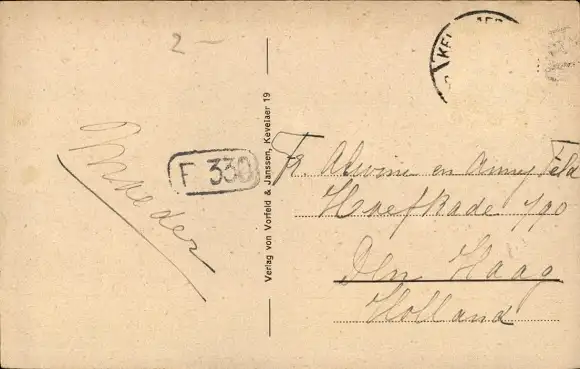 2 –
KEV
Moeder
F 330
Verlag von Vorfeld & Janssen, Kevelaer 19
Fr. Alwine en Anny Feld
Hoefkade 790
Den Haag
Holland